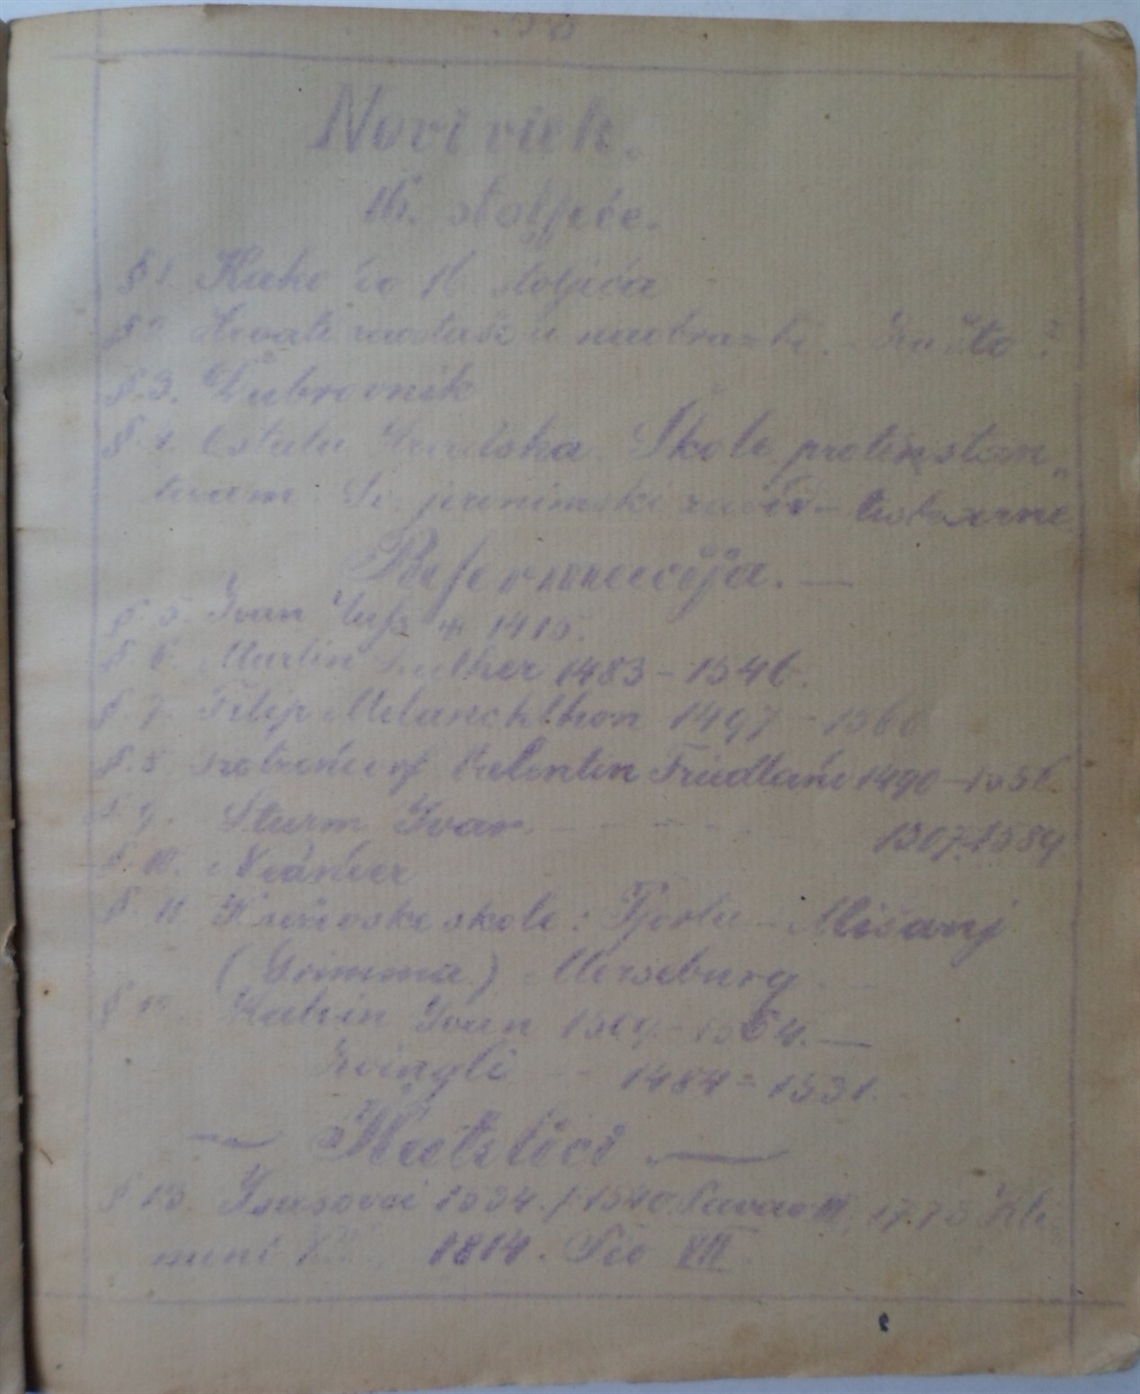 Novi viek.
16. stoljeće.
§ 1. Kako do 16 stoljeća
§ 2. Hrvati zaostaše u naobrazbi. - Zašto?
§. 3. Dubrovnik
§. 4. Ostala Hrvatska. Škole protestan-
tizam.
Reformacija. —
§. 5. Ivan Huss + 1415.
§. 6. Martin Luther 1483 - 1546.
§. 7. Filip Melanchthon 1497 - 1560
§. 8 Valentin Friedland 1490 - 1556.
§ 9. Sturm Ivan. - - - - 1507-1589
§. 10. Neander
§. 11 škole: Pforta - Mišanj
(Grimma) Merseburg
§ 12. Kalvin Ivan 1509 - 1564. —
Zwingli - 1484 = 1531.
— Katolici —
§ 13. Isusovci 1534. / 1540 Pavao III, 1773 Kle-
ment 1814. Pio VII.